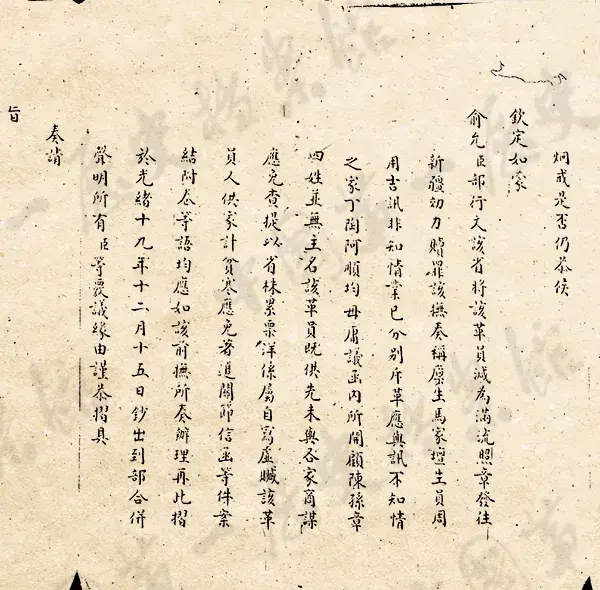 炯戒是否仍恭候
欽定如蒙
俞允臣部行文該省將該革員減為滿流照章發往
新疆効力贖罪該撫奏稱廩生馬家壇生員周
用吉訊非知情業已分別斥革應與訊不知情
之家丁陶阿順均毋庸議函內所開顧陳孫章
四姓並無主名該革員既供先未與各家商謀
應免查提以省株累票洋係屬自寫虛贓該革
員人供家計貧寒應免著追關節信函等件案
結附卷等語均應如該前撫所奏辦理再此摺
於光緒十九年十二月十五日鈔出到部合併
聲明所有臣等覆議緣由謹恭摺具
奏請
旨